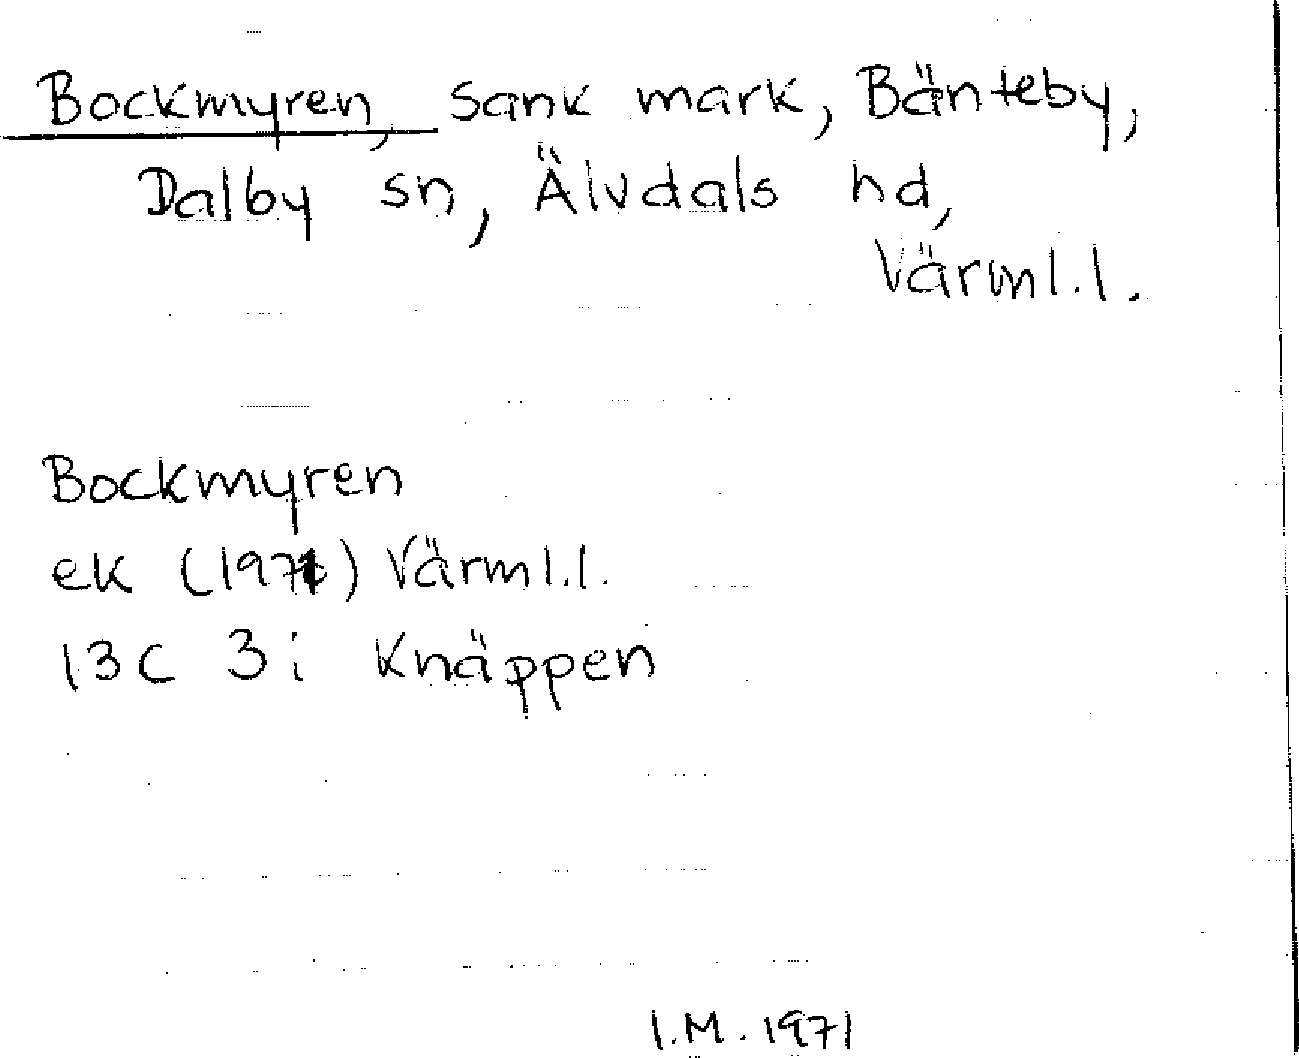 Bockmyren, sank mark, Bänteby,
Dalby sn, Älvdals hd,
Värml.l.
Bockmyren
ek (1971) Värml.l.
13C 3i Knäppen
I.M. 1971